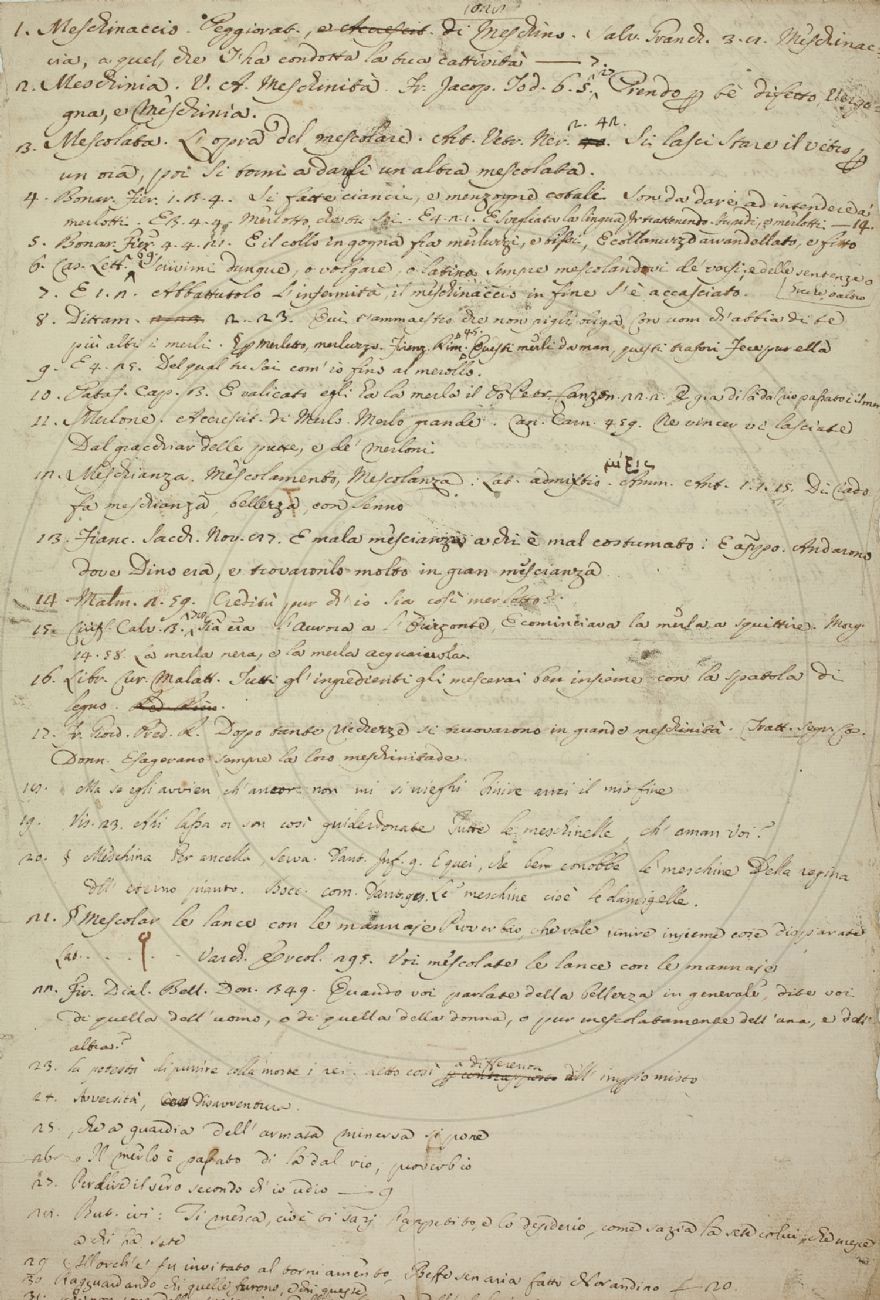 1. Meschinaccio. Peggiorat. di Meschino. Salv. Granch. 3. Meschinac=
cia, a quel, che t'ha condotta la tua cattività —— 7.
2. Meschinia. V. A. Meschinità. Fr. Jacop. Tod. 6. 5. Prendo p te difetto, Vergo=
gna, e Meschinia.
3. Mescolata. L'opra del mescolare. Art. Vetr. Ner. 2. 42. Si lasci stare il vetro p
un ora, poi si torni a darli un altra mescolata.
4. Bonar. Fier. 1. 3. 4. Si fatte ciancie, e menzogne cotali Son da dare ad intendere a'
merlotti. E 3. 4. 4. Merlotto, che tu sei. E 4. 2. 1. E svegliata la lingua — 14.
5. Bonar. Fier. 4. 4. E il collo in gogna fra merluzzi, e E collanuzza avandellato, e fitto
6. Car. Lett. Scrivimi dunque, o volgare, o latino sempre mescolandovi de' versi, e delle sentenze
7. E 1. 2. Abbattutolo l'infermità, il meschinaccio in fine s'è accasciato.
8. Dittam. 2. 23. Qui t'ammaestro che non pigli briga Con uom ch'abbia di te
più alti i merli. merlato, merluzzo. Rim. Questi merli da man, questi trafori Fece pur ella
9. E 4. 25. Del qual tu sai com'io fino al merollo.
10. Pataf. Cap. 3. E valicato egli ha la merla il Petr. Canzon. E già di là dal rio passato è il merlo
11. Merlone. Accrescit. di Merlo. Merlo grande. Cant. Carn. 459. Ne vincer vi lasciate
Dal gracchiar delle putte, e de' merloni.
12. Meschianza. Mescolamento, Mescolanza. Lat. admistio. Amm. Ant. 1. 1. 15. Di rado
fa meschianza bellezza con senno
13. Franc. Sacch. Nov. 27. E mala mescianza a chi è mal costumato: E appo. Andarono
dove Dino era, e trovaronlo molto in gran mescianza
14 Malm. 2. 59. Credi tu pur ch'io sia così merlotto?
15. Ciriff. Calv. 3. Già era l'Aurora a l'Orizonte, E cominciava la merla a squittire. Morg.
14. 58. La merla nera, e la merla acquaiuola.
16. Libr. Cur. Malatt. Tutti gl'ingredienti gli mescerai ben insieme con la spatola di
legno.
17. Fr. Giord. Pred. R. Dopo tante ricchezze si trovarono in grande meschinità. Tratt. Segr. Co.
Donn. Esagerano sempre la loro meschinitade.
18. Ma se egli avvien ch'ancor non mi si nieghi Finire anzi il mio fine
19. Vis. 23. Ahi lassa or son così guiderdonate Tutte le meschinelle, ch'aman voi?
20. § Meschina Per ancella, serva. Dant. Inf. 9. E quei, che ben conobbe le meschine Della regina
dell'eterno pianto. Bocc. com. Dant. Le meschine cioè le damigelle.
21. § Mescolar le lance con le mannaje Proverbio, che vale unire insieme cose disparate
Lat. . . . . Varch. Ercol. 295. Voi mescolate le lance con le mannaje
22. Fir. Dial. Bell. Don. 349. Quando voi parlate della bellezza in generale, dite voi
di quella dell'uomo, o di quella della donna, o pur mescolatamente dell'una, e dell'
altra?
23. la potestà di punire colla morte i rei. detto così a differenza dell' misto
24. Avversità, Disavventura.
25. , che a guardia dell'armata minerva si pone
26. Il merlo è passato di là dal rio, proverbio
27. Perdere il sero secondo ch'io udio — 9
28. But. ivi: Ti mesca, cioè ti sazj l'appetito, e lo desiderio, come sazia la sete colui, che mesce
a chi ha sete
29. Allorch'è fu invitato al torniamento, Beffe se n'aria fatto Norandino — 20.
30. Ragguardando chi quelle furono,
31.